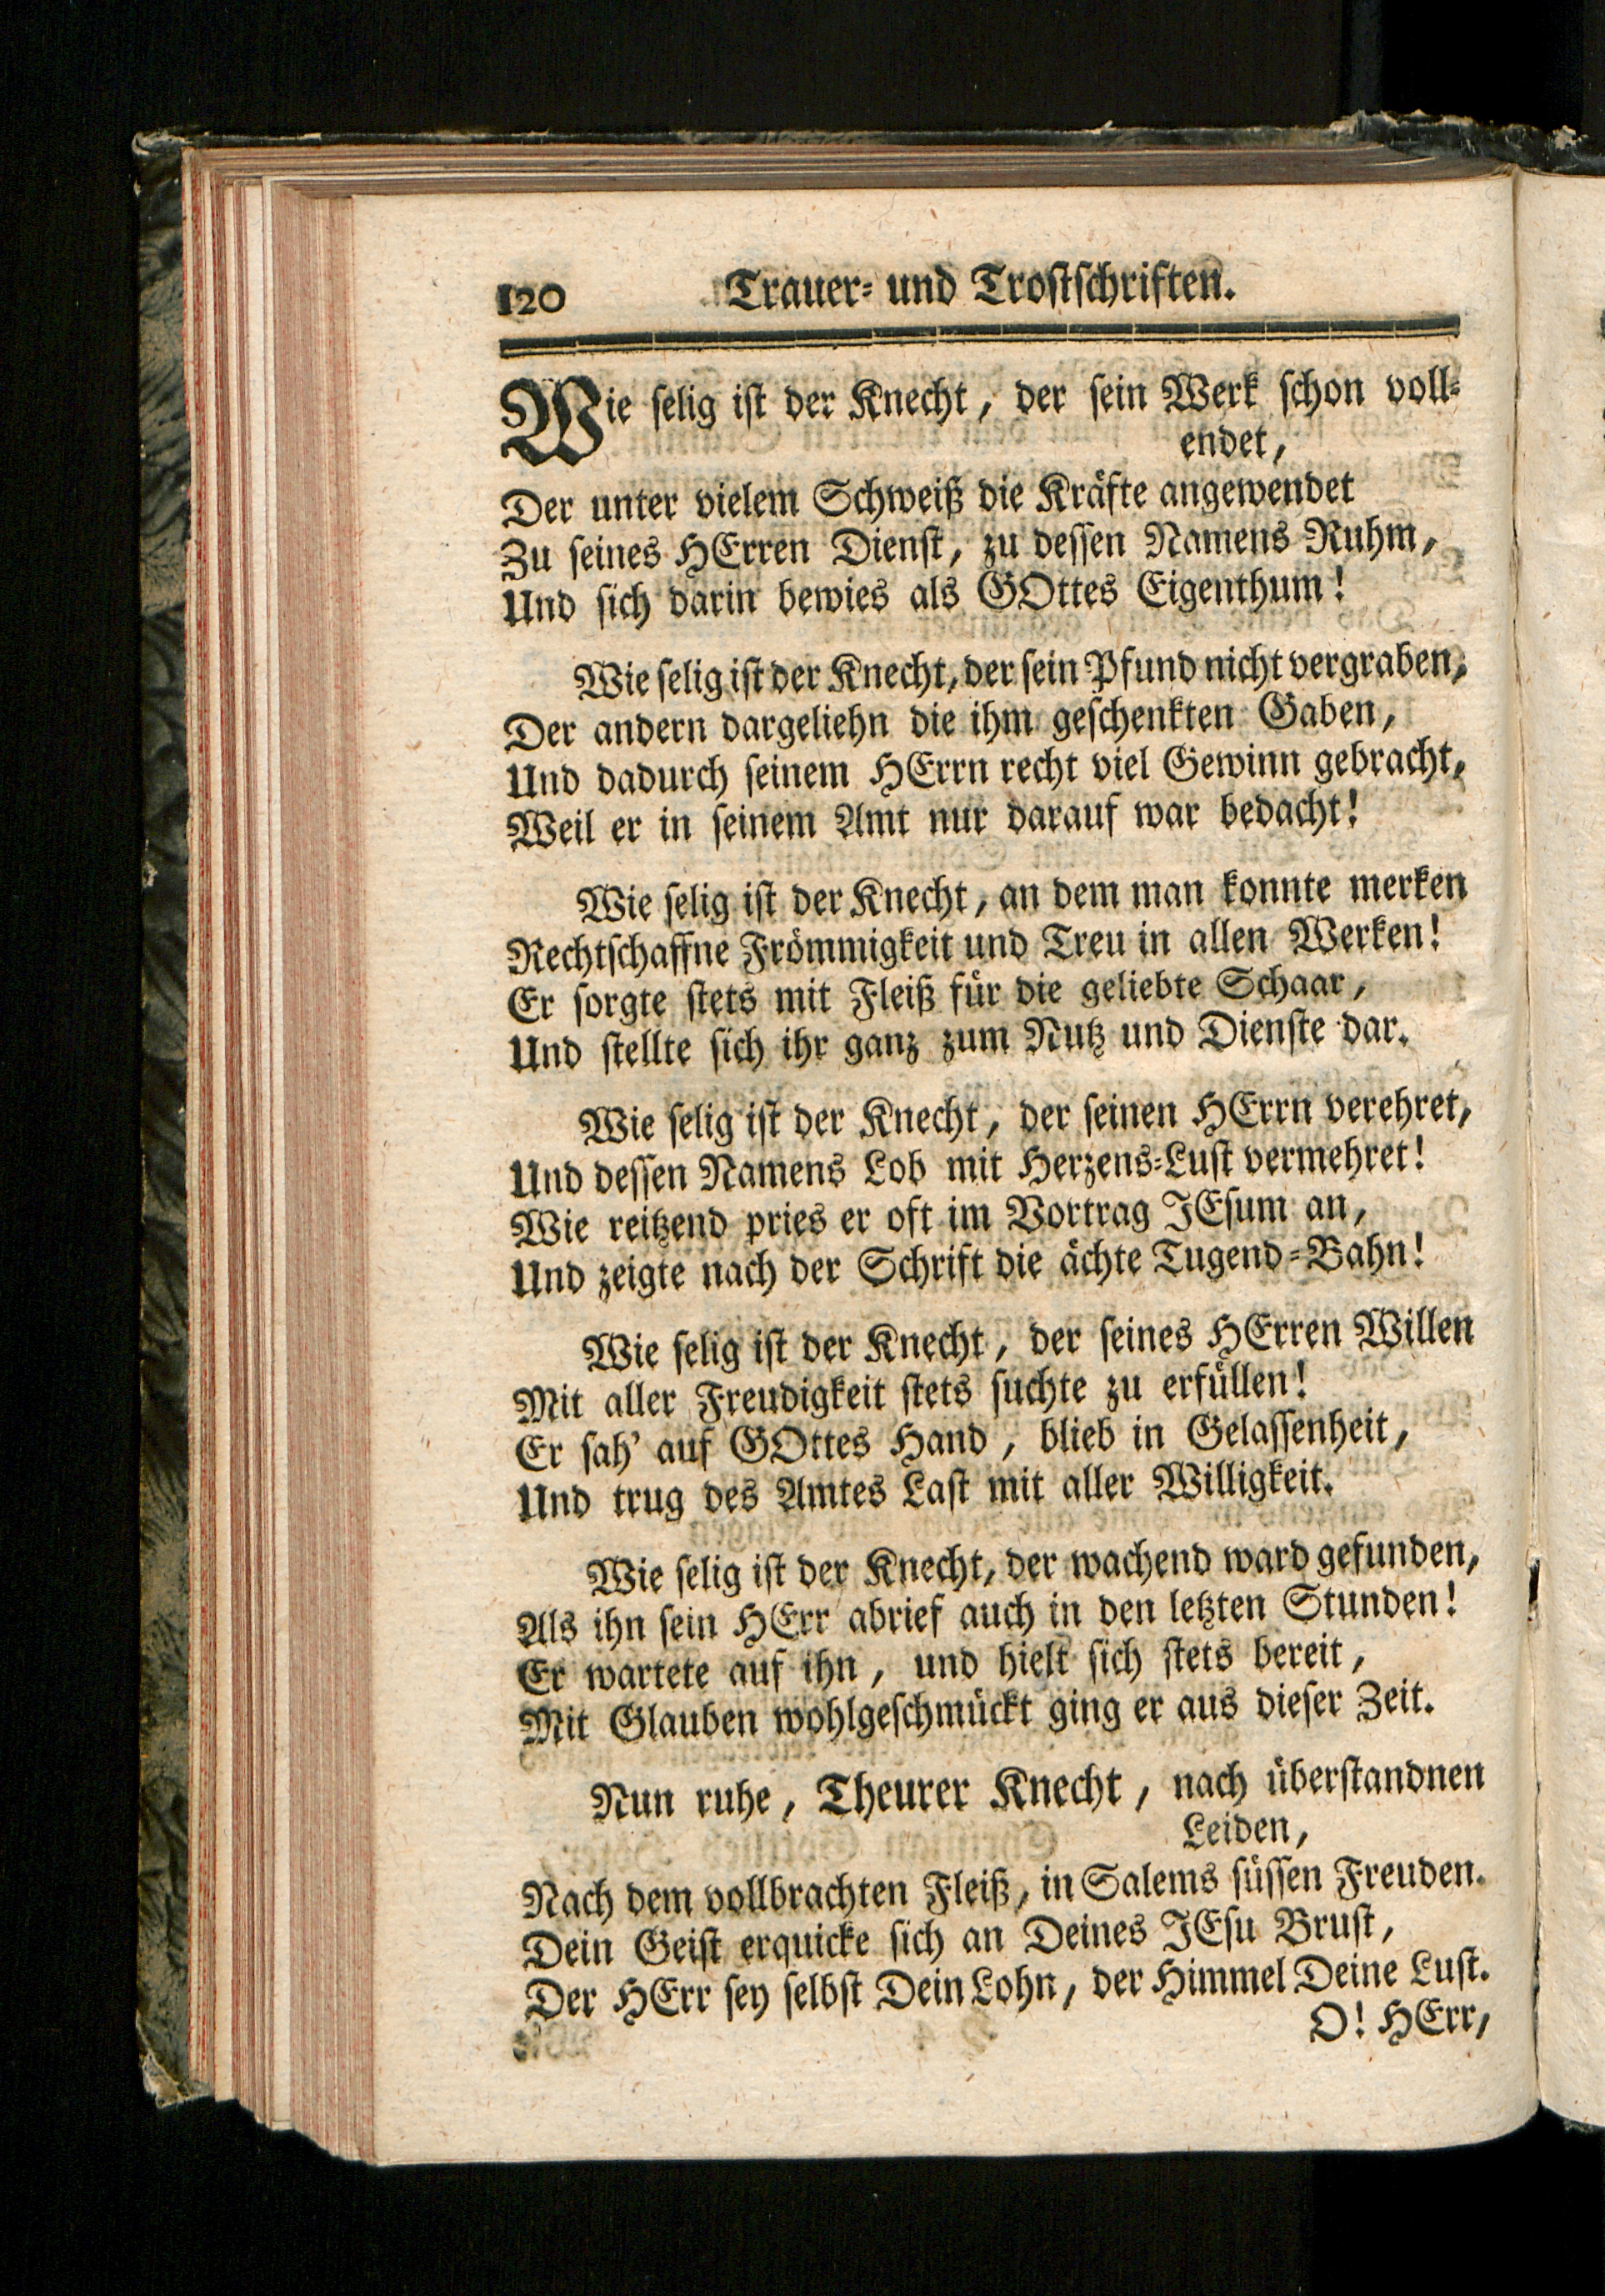 120 Trauer- und Trostschriften.
Wie selig ist der Knecht, der sein Werk schon voll-
endet,
Der unter vielem Schweiß die Kräfte angewendet
Zu seines HErren Dienst, zu dessen Namens Ruhm,
Und sich darin bewies als GOttes Eigenthum!
Wie selig ist der Knecht, der sein Pfund nicht vergraben,
Der andern dargeliehn die ihm geschenkten Gaben,
Und dadurch seinem HErrn recht viel Gewinn gebracht,
Weil er in seinem Amt nur darauf war bedacht!
Wie selig ist der Knecht, an dem man konnte merken
Rechtschaffne Frömmigkeit und Treu in allen Werken!
Er sorgte stets mit Fleiß für die geliebte Schaar,
Und stellte sich ihr ganz zum Nutz und Dienste dar.
Wie selig ist der Knecht, der seinen HErrn verehret,
Und dessen Namens Lob mit Herzens-Lust vermehret!
Wie reitzend pries er oft im Vortrag JEsum an,
Und zeigte nach der Schrift die ächte Tugend-Bahn!
Wie selig ist der Knecht, der seines HErren Willen
Mit aller Freudigkeit stets suchte zu erfüllen!
Er sah' auf GOttes Hand, blieb in Gelassenheit,
Und trug des Amtes Last mit aller Willigkeit.
Wie selig ist der Knecht, der wachend ward gefunden,
Als ihn sein HErr abrief auch in den letzten Stunden!
Er wartete auf ihn, und hielt sich stets bereit,
Mit Glauben wohlgeschmückt ging er aus dieser Zeit.
Nun ruhe, Theurer Knecht, nach überstandnen
Leiden,
Nach dem vollbrachten Fleiß, in Salems süssen Freuden.
Dein Geist erquicke sich an Deines JEsu Brust,
Der HErr sey selbst Dein Lohn, der Himmel Deine Lust.
O! HErr,